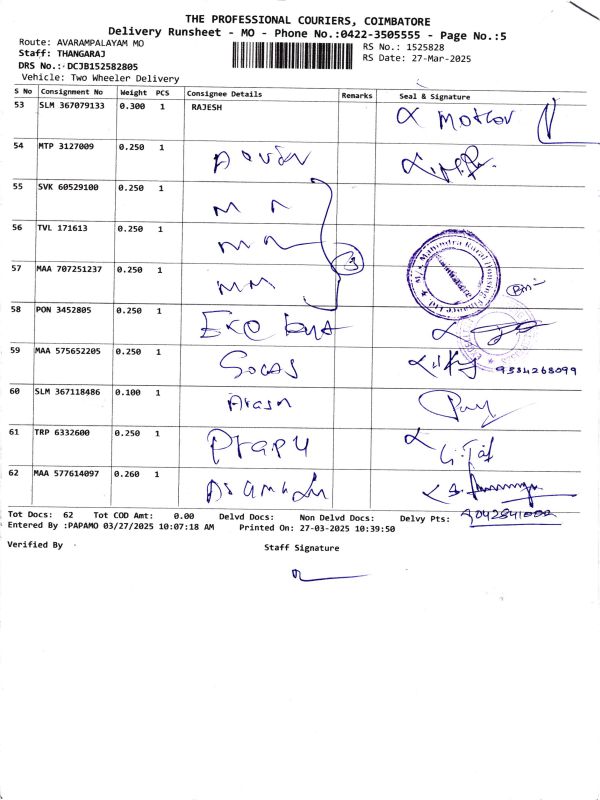 THE PROFESSIONAL COURIERS, COIMBATORE
Delivery Runsheet - MO - Phone No.:0422-3505555 - Page No.:5
Route: AVARAMPALAYAM MO
RS No.: 1525828
Staff: THANGARAJ
RS Date: 27-Mar-2025
DRS No.: DCJB152582805
Vehicle: Two Wheeler Delivery
S No Consignment No Weight PCS Consignee Details Remarks Seal & Signature
53 SLM 367079133 0.300 1 RAJESH
54 MTP 3127009 0.250 1
55 SVK 60529100 0.250 1 M M
56 TVL 171613 0.250 1 M M
57 MAA 707251237 0.250 1 M M
3
58 PON 3452805 0.250 1
59 MAA 575652205 0.250 1 9384268099
60 SLM 367118486 0.100 1 Arasn
61 TRP 6332600 0.250 1 Prapu
62 MAA 577614097 0.260 1
Tot Docs: 62 Tot COD Amt: 0.00 Delvd Docs: Non Delvd Docs: Delvy Pts:
Entered By :PAPAMO 03/27/2025 10:07:18 AM Printed On: 27-03-2025 10:39:50
Verified By
Staff Signature